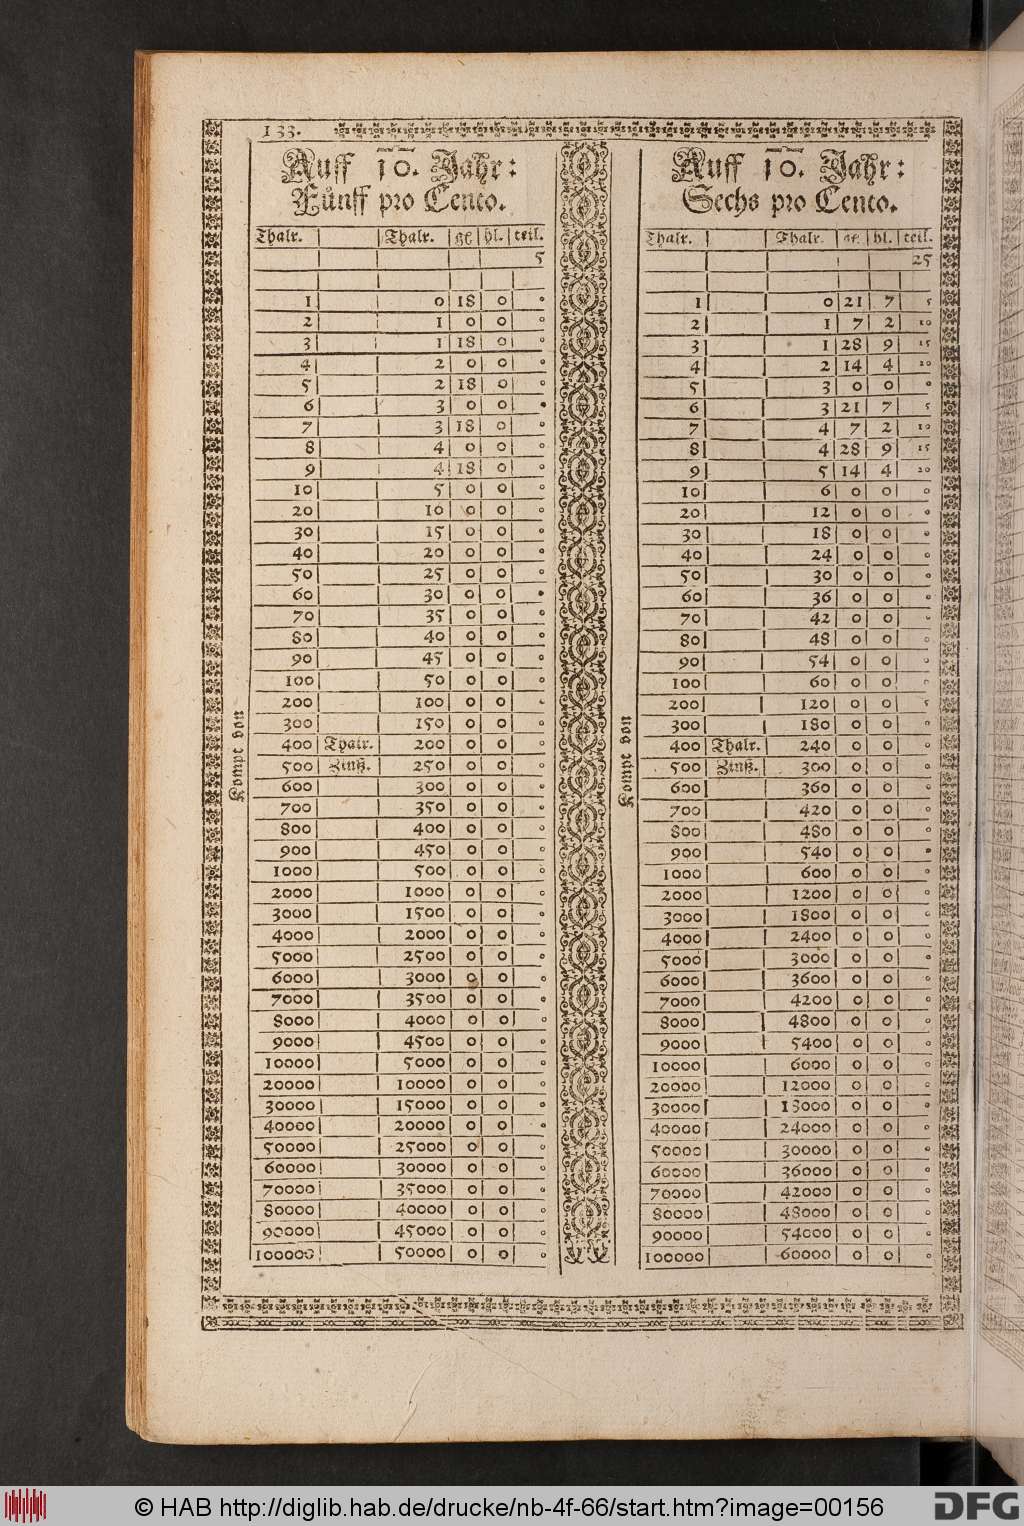 133.
Auff 10. Jahr:
Fůnff pro Cento.
Thalr. Thalr. gℓ hl. teil.
5
1 0 18 0 0
2 1 0 0 0
3 1 18 0 0
4 2 0 0 0
5 2 18 0 0
6 3 0 0 0
7 3 18 0 0
8 4 0 0 0
9 4 18 0 0
10 5 0 0 0
20 10 0 0 0
30 15 0 0 0
40 20 0 0 0
50 25 0 0 0
60 30 0 0 0
70 35 0 0 0
80 40 0 0 0
90 45 0 0 0
100 50 0 0 0
200 100 0 0 0
300 150 0 0 0
Kompt von
400 Thalr. 200 0 0 0
500 Zinß. 250 0 0 0
600 300 0 0 0
700 350 0 0 0
800 400 0 0 0
900 450 0 0 0
1000 500 0 0 0
2000 1000 0 0 0
3000 1500 0 0 0
4000 2000 0 0 0
5000 2500 0 0 0
6000 3000 0 0 0
7000 3500 0 0 0
8000 4000 0 0 0
9000 4500 0 0 0
10000 5000 0 0 0
20000 10000 0 0 0
30000 15000 0 0 0
40000 20000 0 0 0
50000 25000 0 0 0
60000 30000 0 0 0
70000 35000 0 0 0
80000 40000 0 0 0
90000 45000 0 0 0
100000 50000 0 0 0
Auff 10. Jahr:
Sechs pro Cento.
Thalr. Thalr. gℓ hl. teil.
25
1 0 21 7 5
2 1 7 2 10
3 1 28 9 15
4 2 14 4 20
5 3 0 0 0
6 3 21 7 5
7 4 7 2 10
8 4 28 9 15
9 5 14 4 20
10 6 0 0 0
20 12 0 0 0
30 18 0 0 0
40 24 0 0 0
50 30 0 0 0
60 36 0 0 0
70 42 0 0 0
80 48 0 0 0
90 54 0 0 0
100 60 0 0 0
200 120 0 0
300 180 0 0 0
Kompt von
400 Thalr. 240 0 0 0
500 Zinß. 300 0 0 0
600 360 0 0 0
700 420 0 0 0
800 480 0 0 0
900 540 0 0 0
1000 600 0 0 0
2000 1200 0 0 0
3000 1800 0 0 0
4000 2400 0 0 0
5000 3000 0 0 0
6000 3600 0 0 0
7000 4200 0 0 0
8000 4800 0 0 0
9000 5400 0 0 0
10000 6000 0 0 0
20000 12000 0 0 0
30000 18000 0 0 0
40000 24000 0 0 0
50000 30000 0 0 0
60000 36000 0 0 0
70000 42000 0 0 0
80000 48000 0 0 0
90000 54000 0 0 0
100000 60000 0 0 0
© HAB http://diglib.hab.de/drucke/nb-4f-66/start.htm?image=00156
DFG